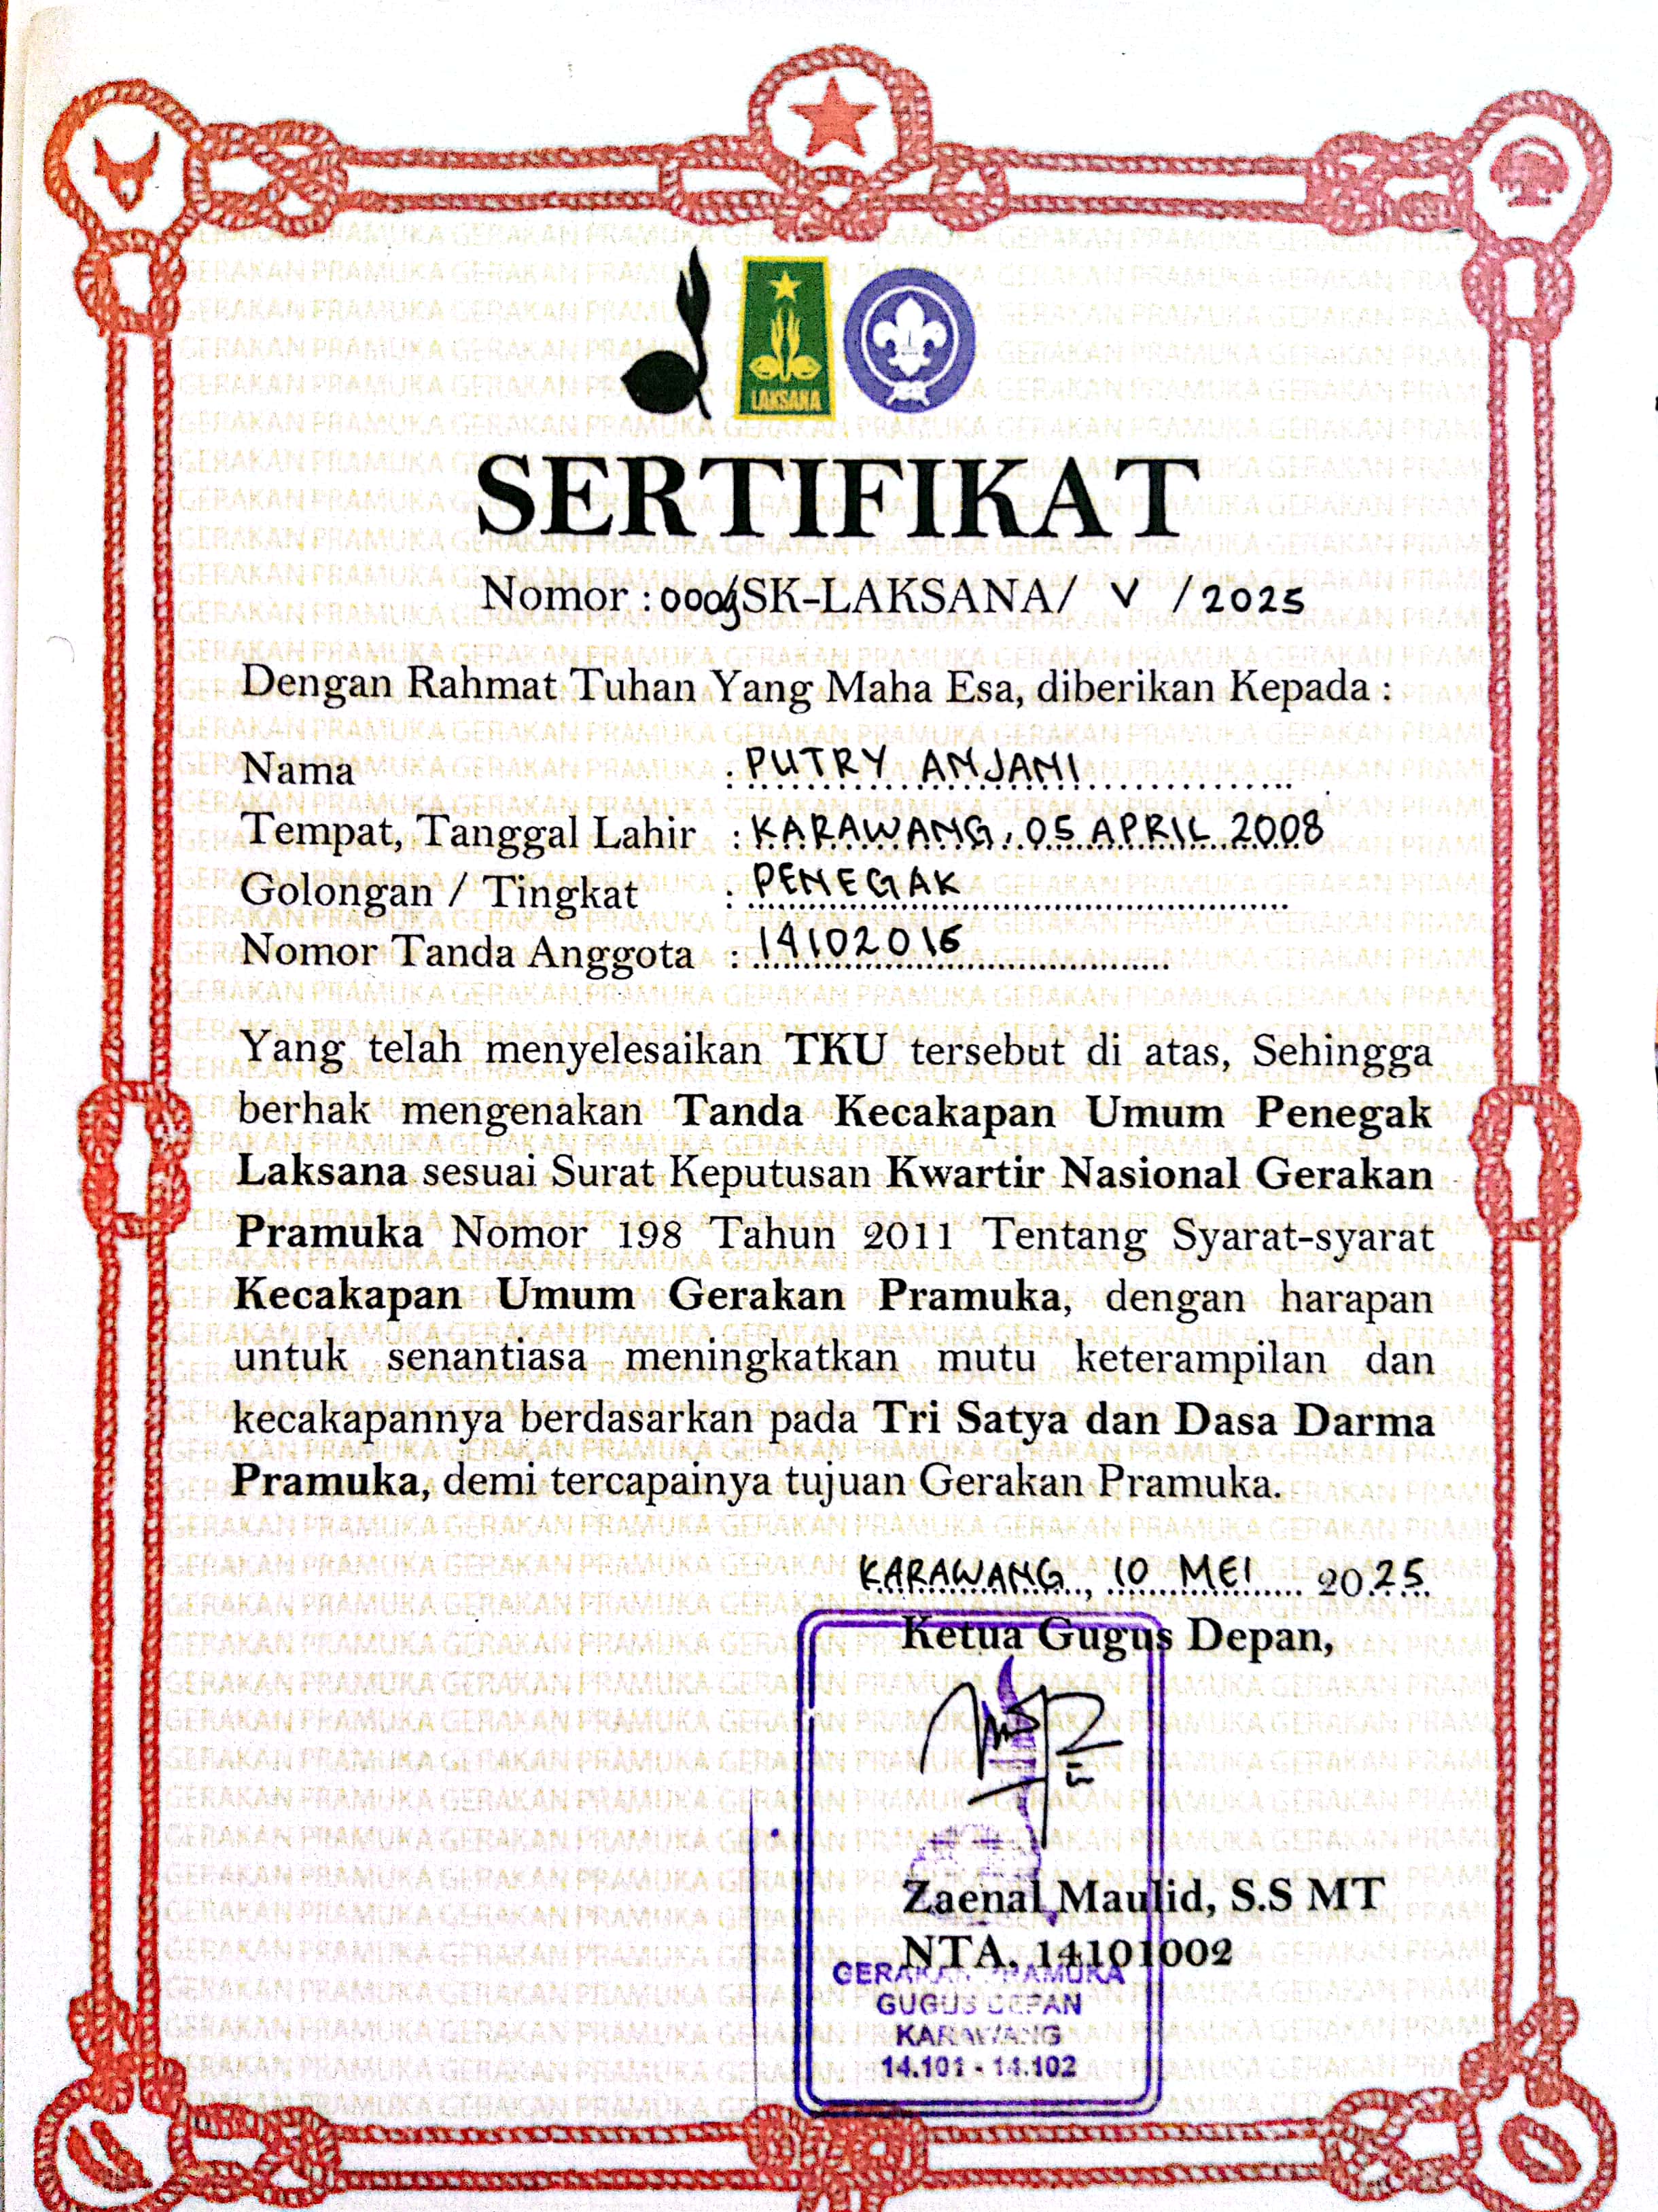 LAKSANA
SERTIFIKAT
Nomor : /SK-LAKSANA/ V /2025
Dengan Rahmat Tuhan Yang Maha Esa, diberikan Kepada :
Nama : PUTRY ANJANI
Tempat, Tanggal Lahir : KARAWANG, 05 APRIL 2008
Golongan / Tingkat : PENEGAK
Nomor Tanda Anggota : 14102016
Yang telah menyelesaikan TKU tersebut di atas, Sehingga
berhak mengenakan Tanda Kecakapan Umum Penegak
Laksana sesuai Surat Keputusan Kwartir Nasional Gerakan
Pramuka Nomor 198 Tahun 2011 Tentang Syarat-syarat
Kecakapan Umum Gerakan Pramuka, dengan harapan
untuk senantiasa meningkatkan mutu keterampilan dan
kecakapannya berdasarkan pada Tri Satya dan Dasa Darma
Pramuka, demi tercapainya tujuan Gerakan Pramuka.
KARAWANG, 10 MEI 2025
Ketua Gugus Depan,
Zaenal Maulid, S.S MT
NTA. 14101002
GERAKAN PRAMUKA
GUGUS DEPAN
KARAWANG
14.101 - 14.102